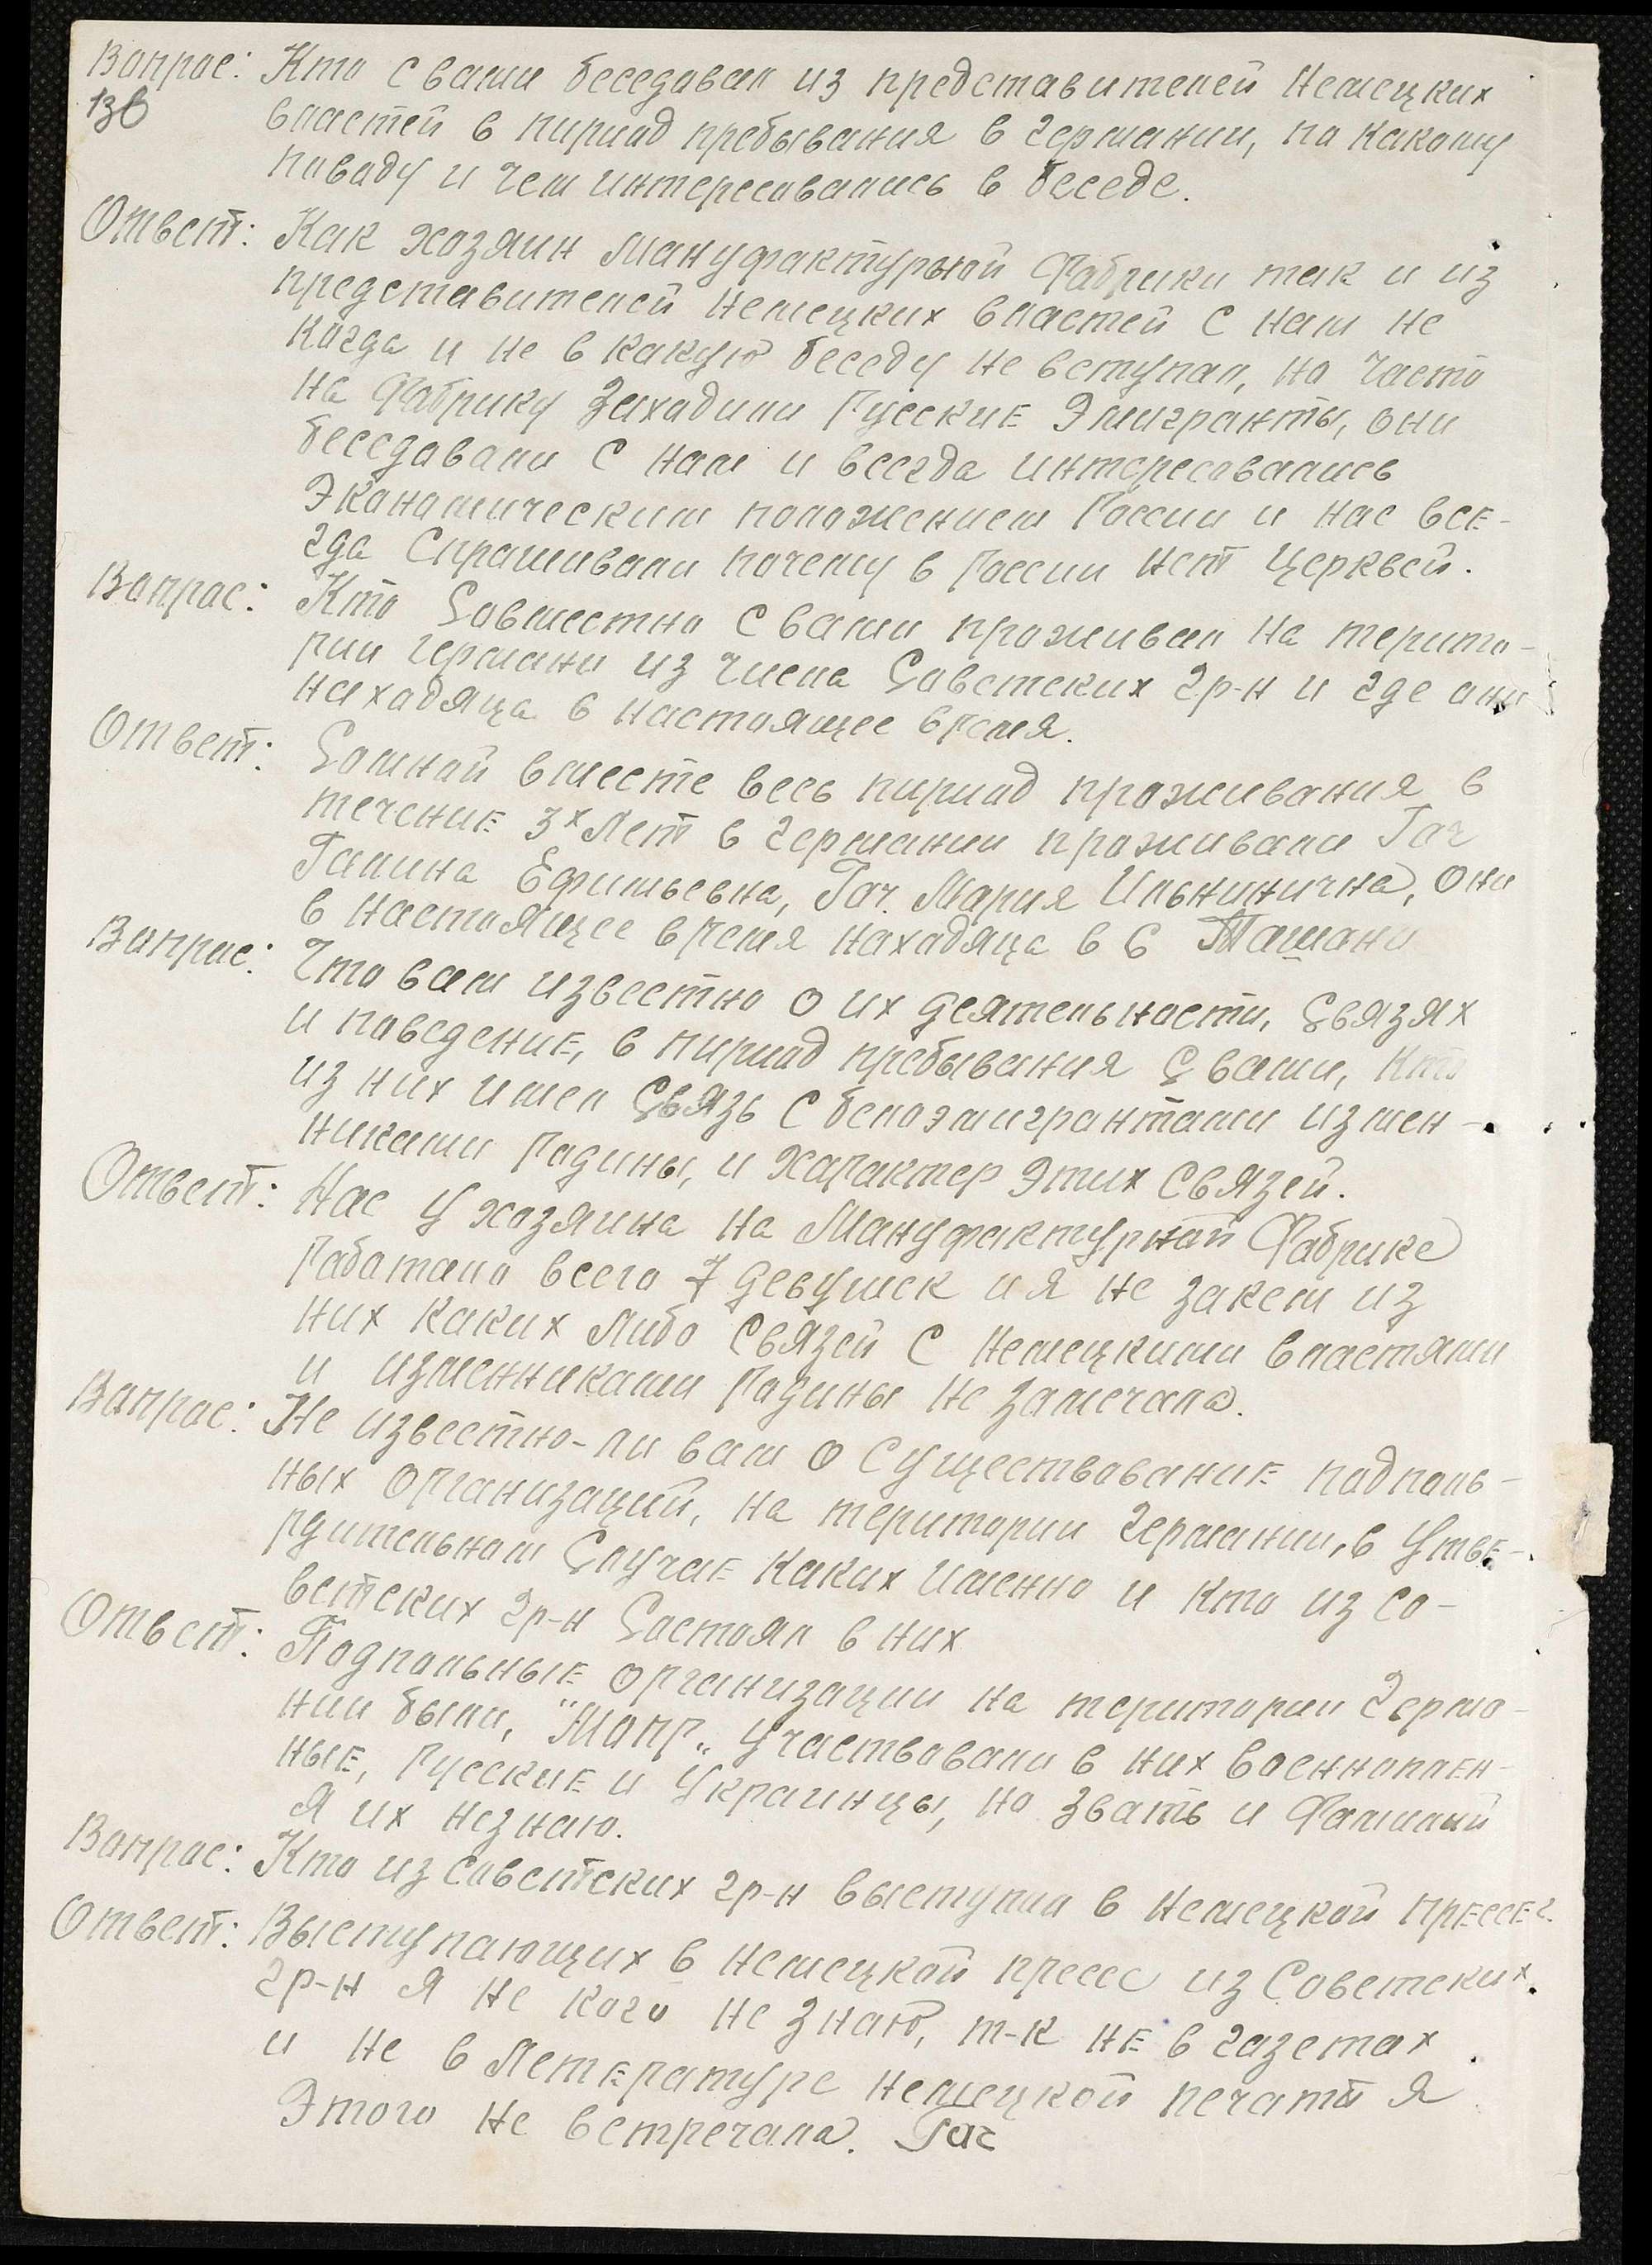 Вопрос: Кто с вами беседовал из представителей Немецких
13в властей в пириод пребывания в германии, по какому
поводу и чем интересовались в беседе.
Ответ: Как хозяин Мануфактурной Фабрики так и из
представителей Немецких властей с нам не
когда и не в какую беседу не вступал, но часто
на Фабрику Заходили Русские Эмигранты, они
беседовали с нам и всегда интересовались
Экономическим положением России и нас все-
гда спрашивали почему в России нет церквей.
Вопрос: Кто Совместно с вами проживал на терито-
рии германи из числа Советских гр-н и где они
находяца в настоящее время.
Ответ: Сомной вместе весь пириод проживания в
течение 3х лет в германии проживали Гач
Галина Ефимьевна, Гач. Мария Ильнинична, они
в настоящее время находяца в с Ташань
Вопрос: Что вам известно о их деятельности, Связях
и поведение, в пириод пребывания с вами, Кто
из них имел Связь с белоэмигрантами измен-
никами Родины, и характер этих связей.
Ответ: Нас у хозяина на Мануфактурной Фабрике
Работало всего 7 девушек и я не закем из
них каких либо связей с немецкими властями
и изменниками Родины не замечала.
Вопрос: Не известно-ли вам о существование подполь-
ных организаций, на територии германии, в утве-
рдительном Случае каких именно и кто из со-
ветских гр-н Состоял в них
Ответ: Подпольные организации на територии герма-
нии были, "Мопр„ участвовали в них военноплен-
ные, Русские и Украинцы, но звать и Фамилий
я их незнаю.
Вопрос: Кто из советских гр-н выступил в немецкой прессе?
Ответ: Выступающих в немецкой прессе из Советских
гр-н я не кого не знаю, т-к не в газетах
и не в летературе немецкой печати я
Этого не встречала. Гач